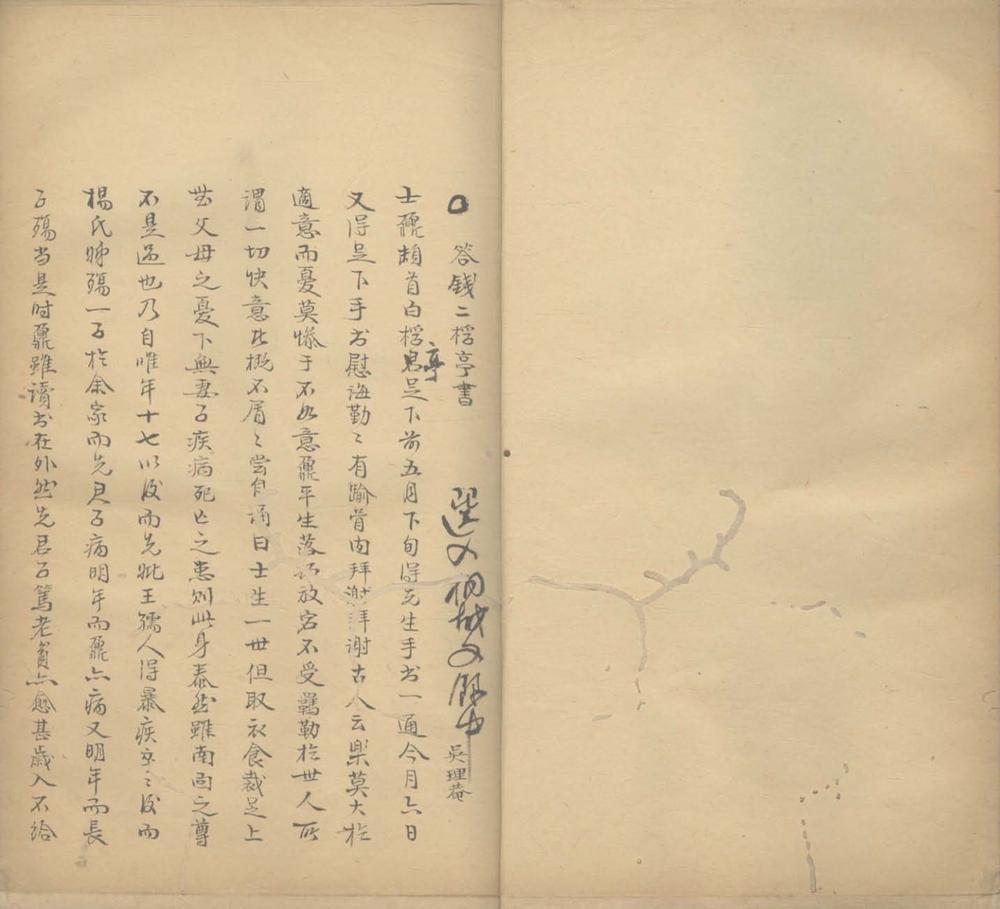 答錢二桴亭書 選入桐城文錄中 吳理菴
士鼐頓首白桴亭足下前五月下旬得先生手書一通今月六日
又得足下手书慰诲勤〻有踰骨肉拜謝拜謝古人云樂莫大於
適意而憂莫慘于不如意鼐平生落拓放宕不受羈勒於世人所
謂一切快意比概不屑〻嘗自誦曰士生一世但取衣食裁足上
無父母之憂下無妻子疾病死亡之患則此身泰然雖南面之尊
不是過也乃自惟年十七以後而先妣王孺人得暴疾卒之後而
楊氏姊殤一子於余家而先君子病明年而鼐亦病又明年而長
子殤当是时鼐雖讀书在外然先君子篤老貧亦愈甚歲入不給